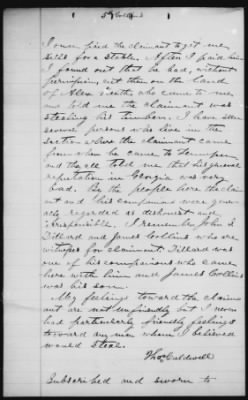 I once hired the claimant to get me
sills for a stable. After I paid him
I found out that he had, without
permission, cut them on the land
of Alex Smith, who came to me
and told me the claimant was
stealing his timber. I have seen
several persons who live in the
section where the claimant came
from when he came to
and they all told me that his general
reputation in Georgia was very
bad. By the people here the claim
ant and his companions were gener
ally regarded as dishonest and
irresponsible. I remember John S.
Dillard and James Collins who are
witnesses for claimant. Dillard was
one of his companions who came
here with him and James Collins
was his son.
My feelings toward the claim
ant are not unfriendly but I never
had particularly friendly feelings
toward any man whom I believed
would steal.
Thos Caldwell
Subscribed and sworn to